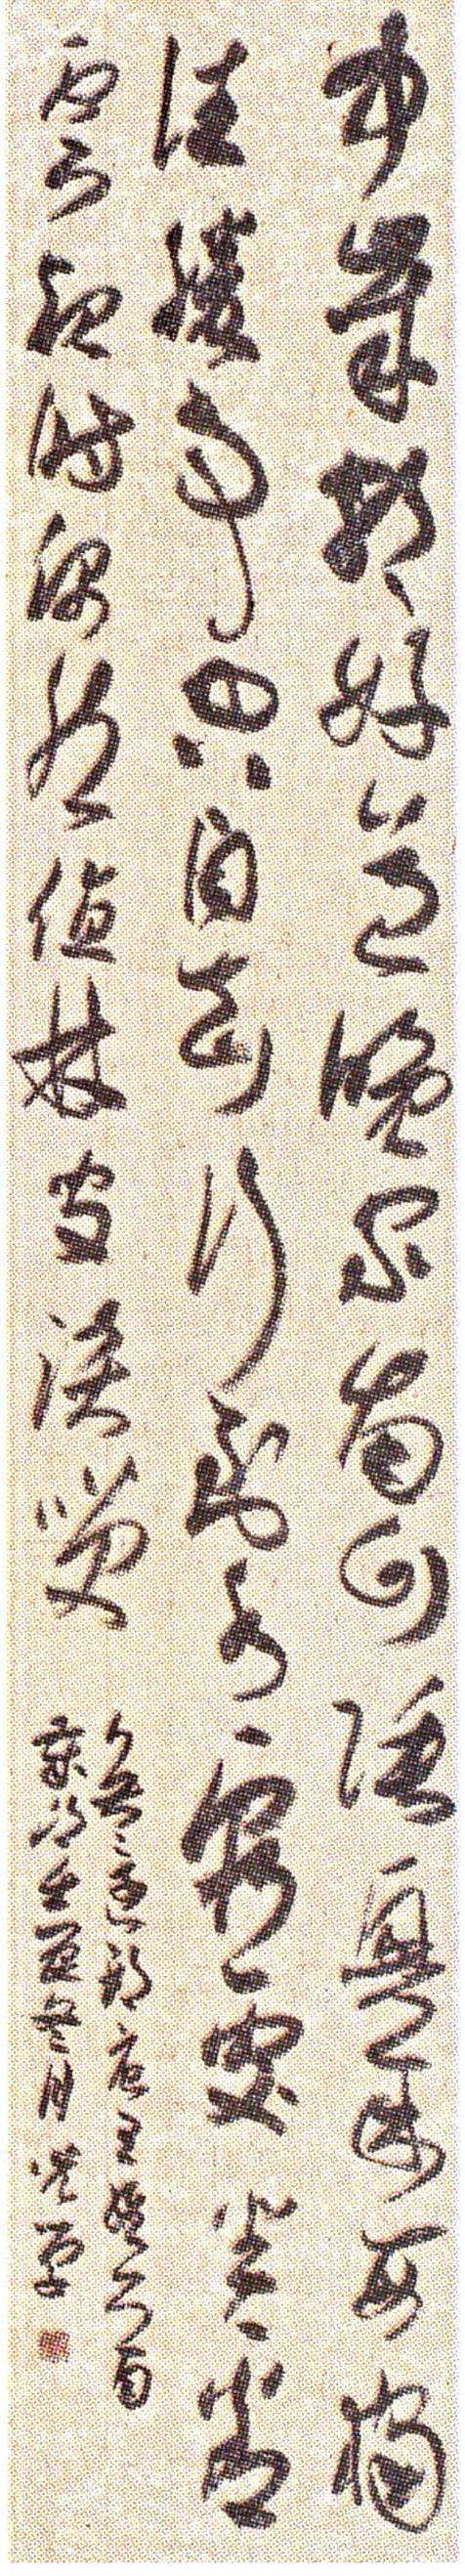 中歲頗好道晚家南山陲興來每獨
往勝事空自知行到水窮處坐看
雲起時偶然值林叟談笑
無還期唐王維
冬月